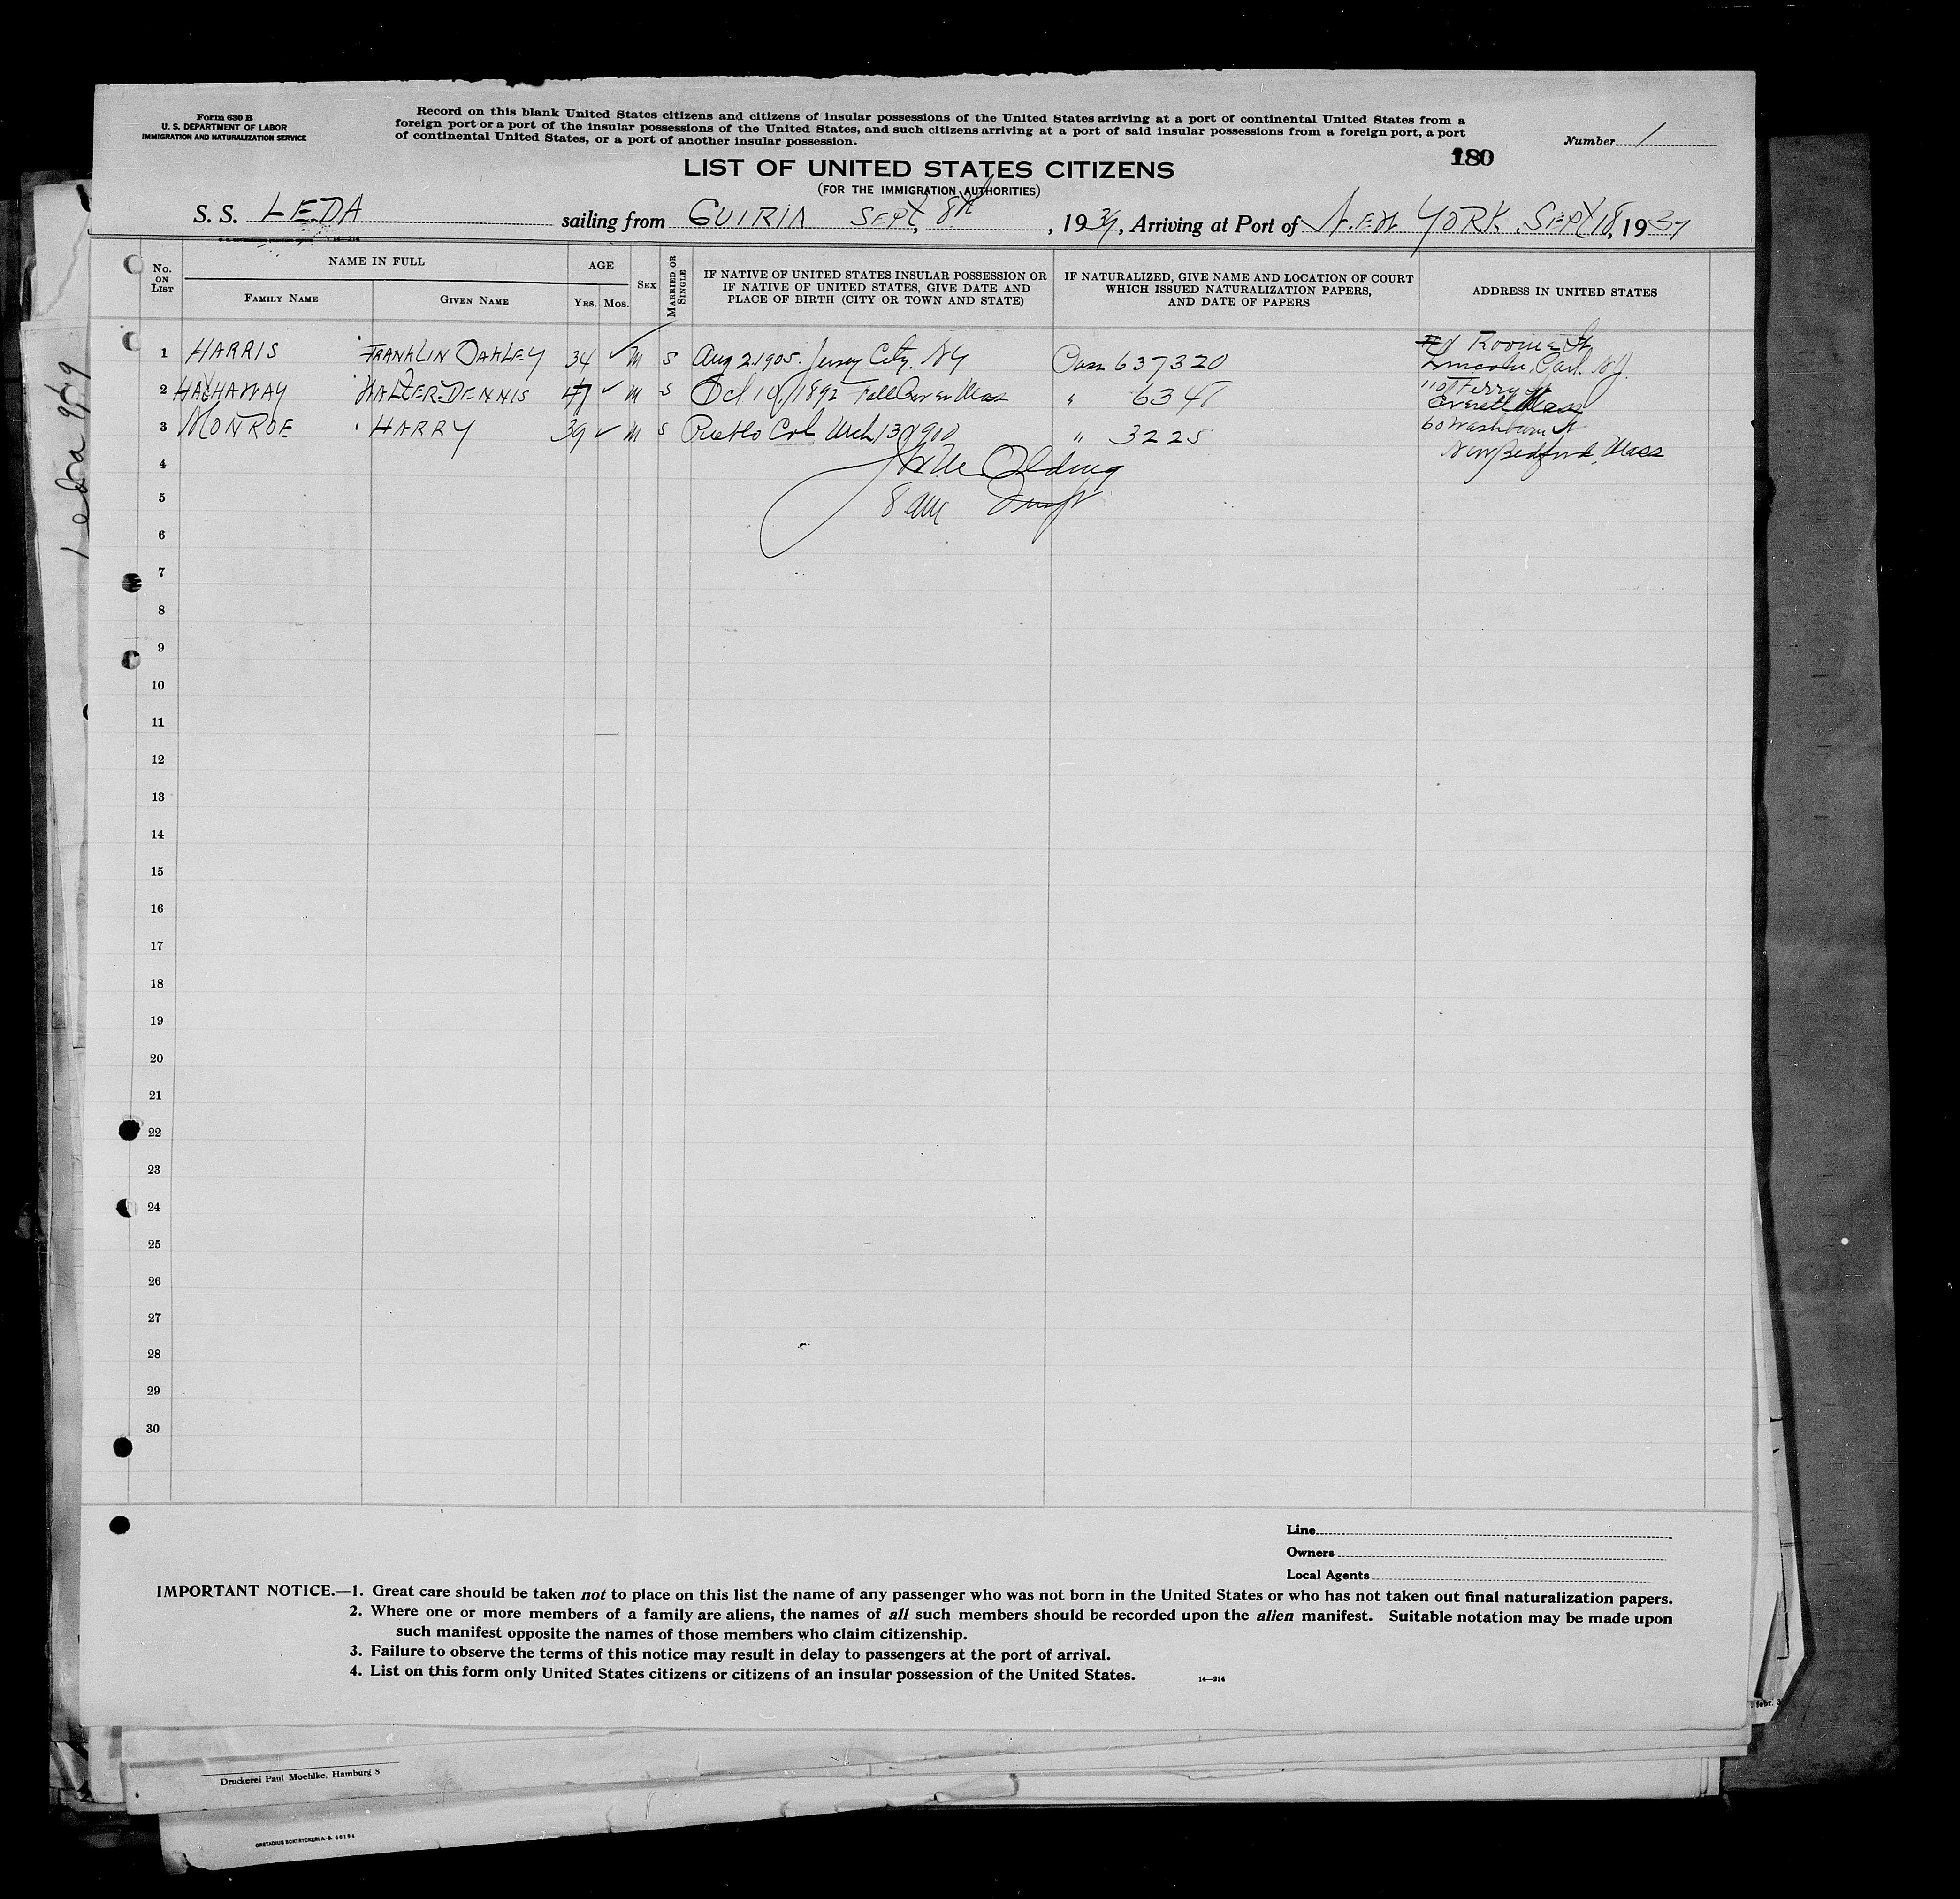 Form 630 B
U. S. DEPARTMENT OF LABOR
IMMIGRATION AND NATURALIZATION SERVICE
Record on this blank United States citizens and citizens of insular possessions of the United States arriving at a port of continental United States from a
foreign port or a port of the insular possessions of the United States, and such citizens arriving at a port of said insular possessions from a foreign port, a port
of continental United States, or a port of another insular possession.
Number 1
180
LIST OF UNITED STATES CITIZENS
(FOR THE IMMIGRATION AUTHORITIES)
S. S. LEDA sailing from GUIRIA SEPT 8th, 1939, Arriving at Port of NEW YORK SEPT 18, 1939
No. ON LIST
NAME IN FULL
FAMILY NAME
GIVEN NAME
AGE
YRS. MOS.
SEX
MARRIED OR SINGLE
IF NATIVE OF UNITED STATES INSULAR POSSESSION OR
IF NATIVE OF UNITED STATES, GIVE DATE AND
PLACE OF BIRTH (CITY OR TOWN AND STATE)
IF NATURALIZED, GIVE NAME AND LOCATION OF COURT
WHICH ISSUED NATURALIZATION PAPERS,
AND DATE OF PAPERS
ADDRESS IN UNITED STATES
1 HARRIS FRANKLIN OAKLEY 34 M S Aug 2. 1905. Jersey City. NY 637320
Lincoln Park NJ.
2 HATHAWAY WALTER-DENNIS 47 M S Oct 14/1892 Fall River Mass " 6347 Ferry St
Everett Mass
3 MONROE HARRY 39 M S Pueblo Col. Mch 13 1900 " 3225 60 Washburn St
New Bedford, Mass
4
5 8 am
6
7
8
9
10
11
12
13
14
15
16
17
18
19
20
21
22
23
24
25
26
27
28
29
30
Line
Owners
Local Agents
IMPORTANT NOTICE.—1. Great care should be taken not to place on this list the name of any passenger who was not born in the United States or who has not taken out final naturalization papers.
2. Where one or more members of a family are aliens, the names of all such members should be recorded upon the alien manifest. Suitable notation may be made upon
such manifest opposite the names of those members who claim citizenship.
3. Failure to observe the terms of this notice may result in delay to passengers at the port of arrival.
4. List on this form only United States citizens or citizens of an insular possession of the United States.
14—214
febr. 3
Druckerei Paul Moehlke, Hamburg 8
Leda 9/19